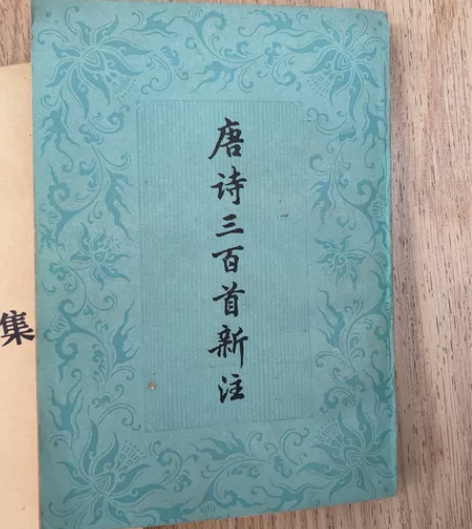 唐诗三百首新注
集